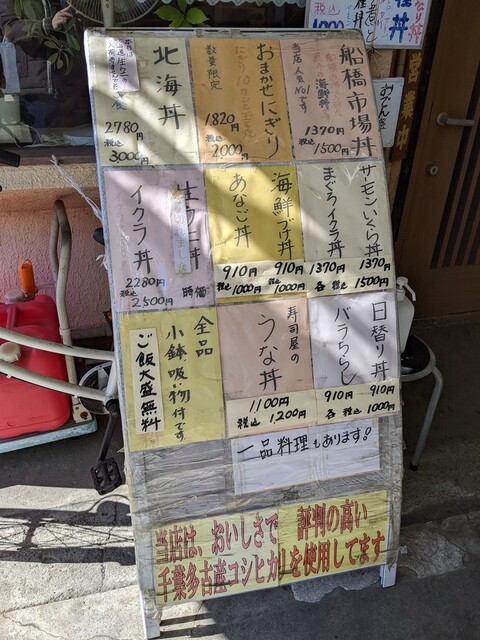 船橋市場丼
当店人気No.1です
海鮮丼
1370円
税込 1500円
おまかせにぎり
数量限定
1820円
税込 2000円
北海丼
2780円
税込 3000円
サーモンいくら丼
まぐろイクラ丼
1370円 1370円
各 税込 1500円
海鮮づけ丼
910円
税込 1000円
あなご丼
910円
税込 1000円
生ウニ丼
時価
イクラ丼
2280円
税込 2,500円
日替り丼
バラちらし
910円 910円
各 税込 1000円
寿司屋の
うな丼
1100円
税込 1,200円
全品
小鉢吸い物付です
ご飯大盛無料
一品料理もあります!
当店は、おいしさで 評判の高い
千葉多古産コシヒカリを使用してます
営業中